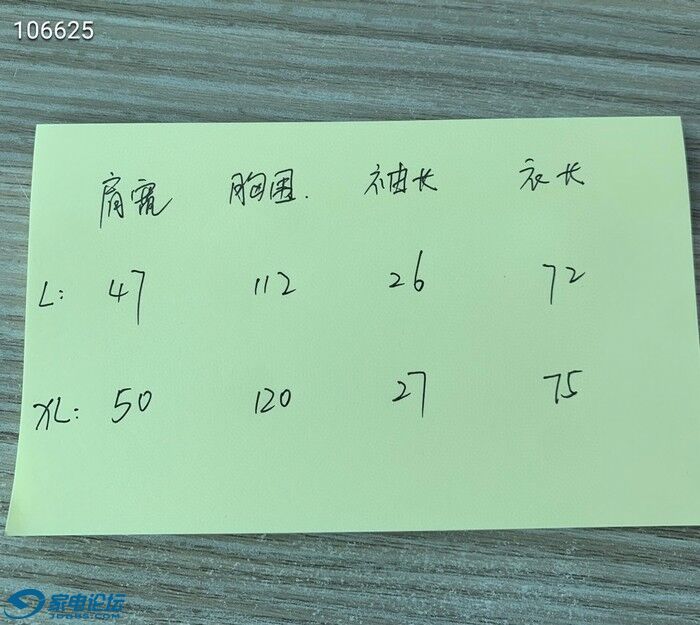 106625
肩宽 胸围. 袖长 衣长
L: 47 112 26 72
XL: 50 120 27 75
家电论坛
JD885.COM